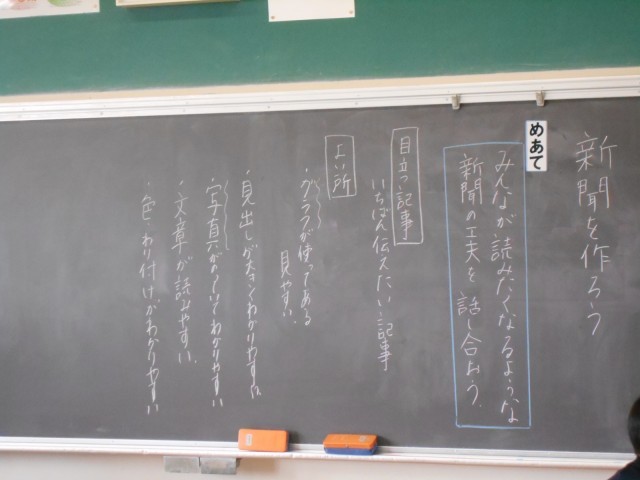 新聞を作ろう
めあて
みんなが読みたくなるような
新聞の工夫を話し合おう。
目立つ記事
いちばん伝えたい記事
よい所
・グラフが使ってある
見やすい。
・見出しが大きくわかりやすい。
・写真がのっていてわかりやすい
・文章が読みやすい。
・色わり付けがわかりやすい